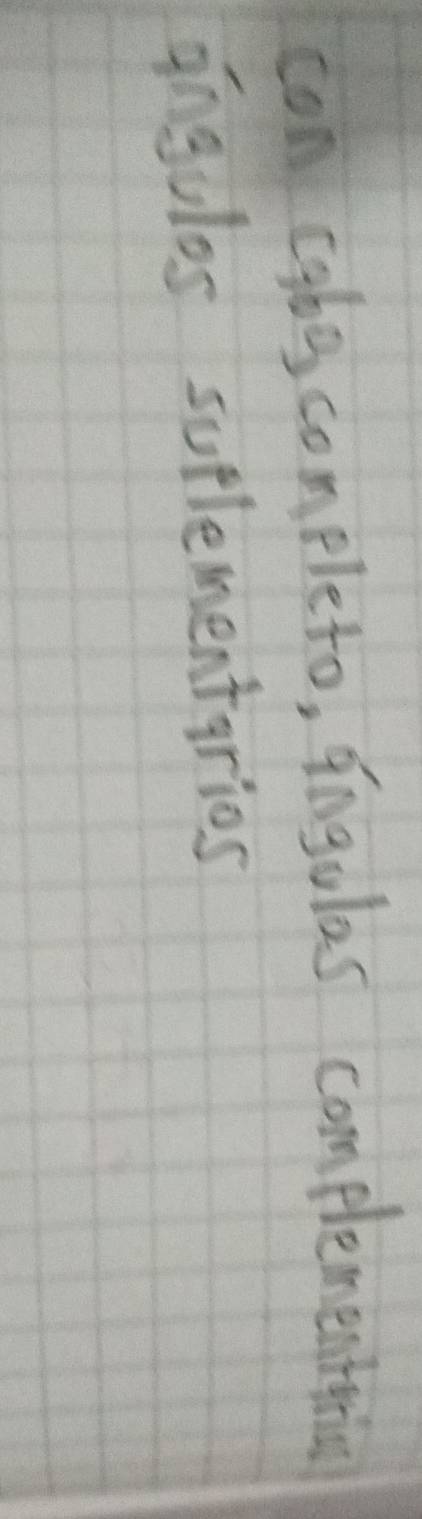 con completo, ángulos complementario
ángulos suplementarios